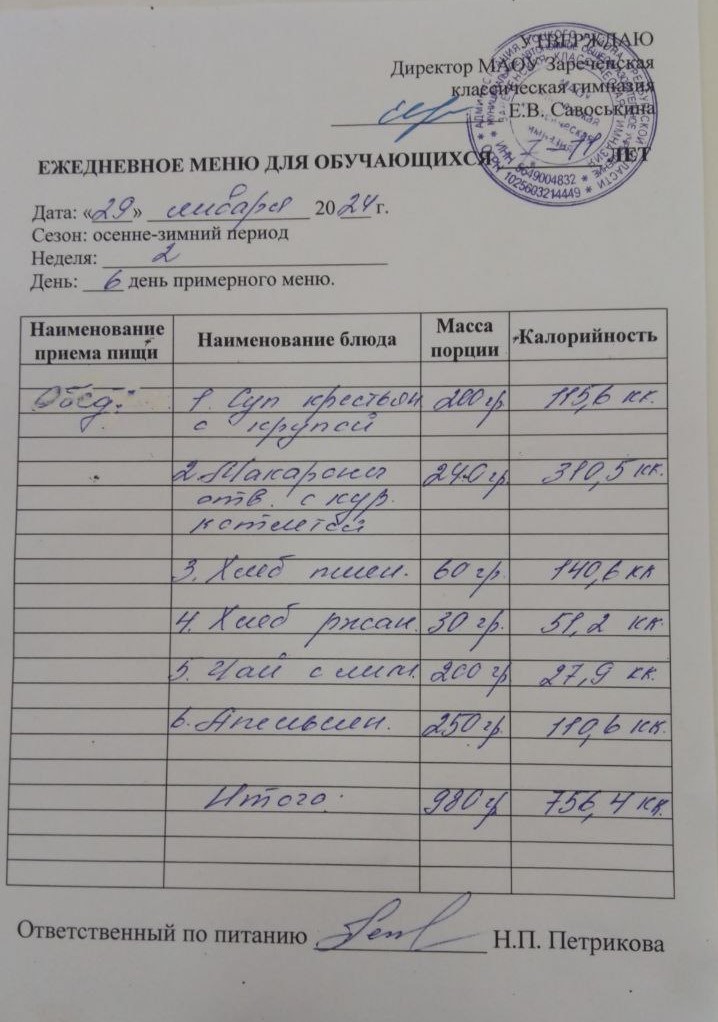 УТВЕРЖДАЮ
Директор МАОУ Зареченская
классическая гимназия
Е.В. Савоськина
ЕЖЕДНЕВНОЕ МЕНЮ ДЛЯ ОБУЧАЮЩИХСЯ 7-11 ЛЕТ
Дата: «29» января 2024 г.
Сезон: осенне-зимний период
Неделя: 2
День: 6 день примерного меню.
Наименование приема пищи Наименование блюда Масса порции Калорийность
Обед: 1. Суп крестьян. 200 гр 115,6 кк.
с крупой
2. Макароны 240 гр. 310,5 кк.
отв. с кур.
котлетой
3. Хлеб пшен. 60 гр. 140,6 кк
4. Хлеб ржан. 30 гр. 51,2 кк.
5. Чай с лим. 200 гр 27,9 кк.
6. Апельсин. 250 гр. 110,6 кк.
Итого: 980 гр 756,4 кк.
Ответственный по питанию Н.П. Петрикова
ИНН 5649004832
ОГРН 1025603214449